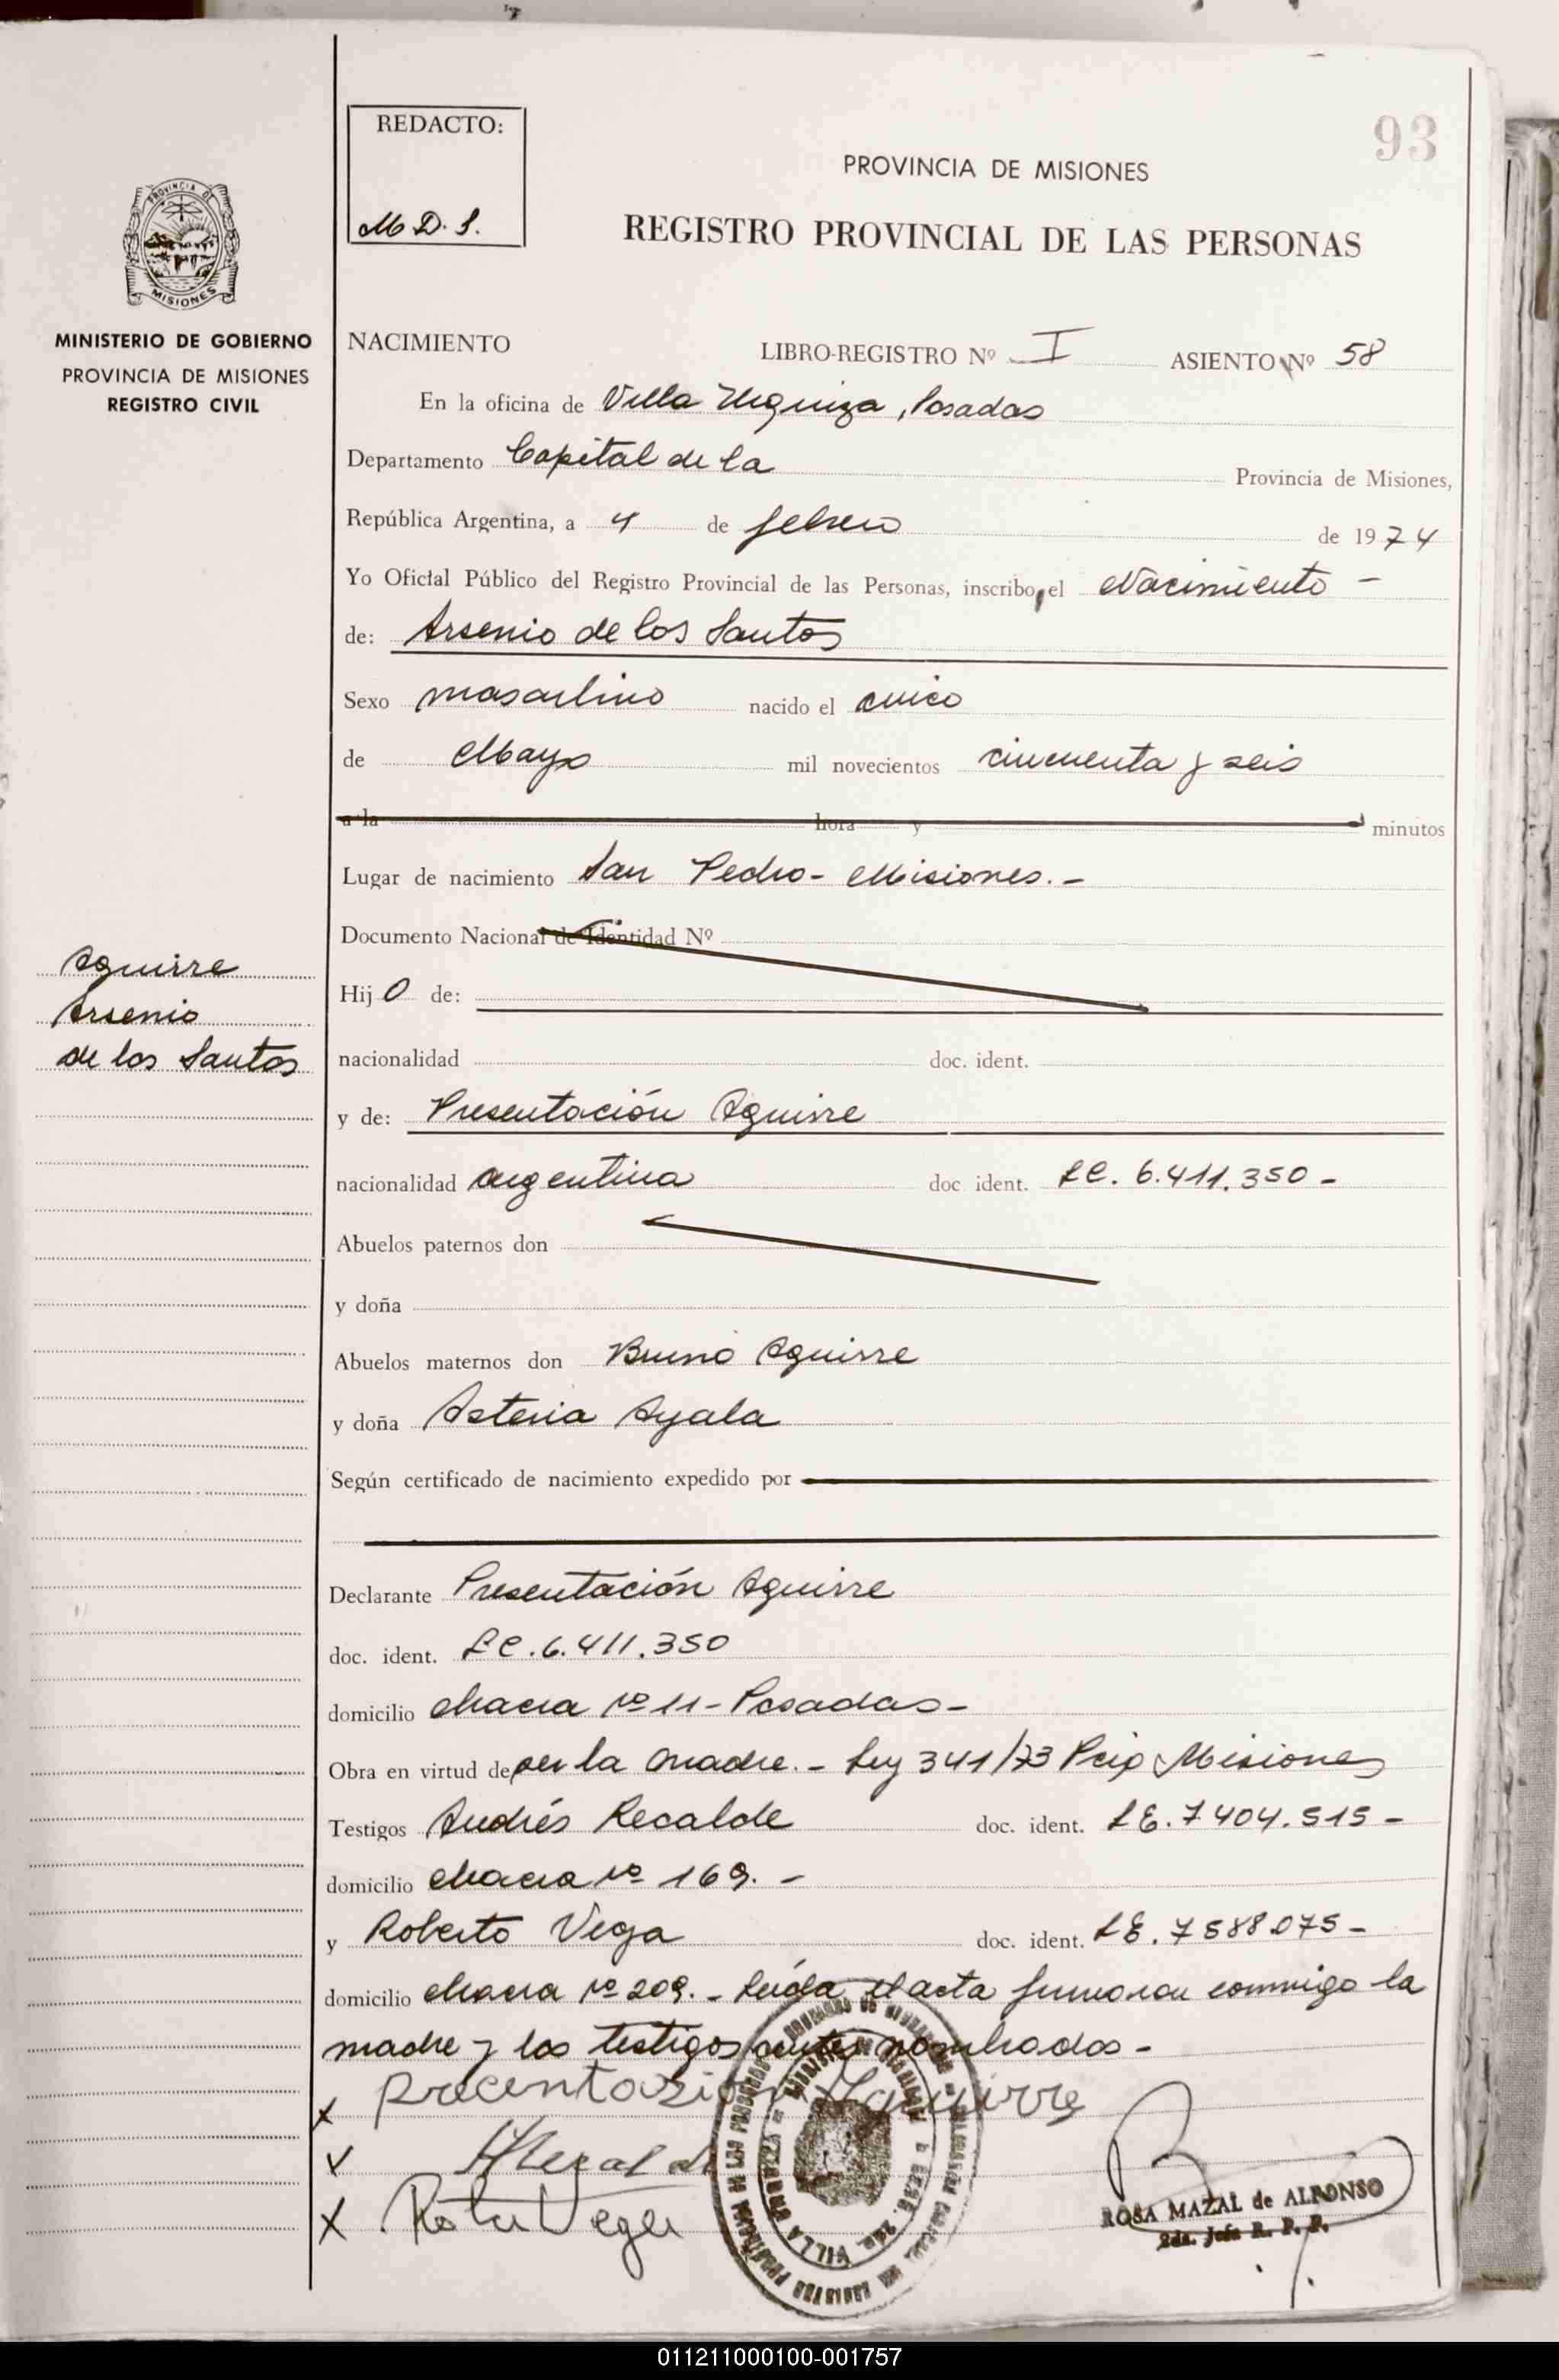 93
REDACTO:
M D. S.
PROVINCIA DE MISIONES
REGISTRO PROVINCIAL DE LAS PERSONAS
PROVINCIA DE
MISIONES
MINISTERIO DE GOBIERNO
PROVINCIA DE MISIONES
REGISTRO CIVIL
NACIMIENTO LIBRO-REGISTRO Nº I ASIENTO Nº 58
En la oficina de Villa Urquiza, Posadas
Departamento Capital de la Provincia de Misiones,
República Argentina, a 4 de febrero de 1974
Yo Oficial Público del Registro Provincial de las Personas, inscribo, el Nacimiento -
de: Arsenio de los Santos
Sexo masculino nacido el cinco
de Mayo mil novecientos cincuenta y seis
a la hora y minutos
Lugar de nacimiento San Pedro - Misiones. -
Documento Nacional de Identidad Nº
Aguirre
Arsenio
de los Santos
Hijo de:
nacionalidad doc. ident.
y de: Presentación Aguirre
nacionalidad argentina doc ident. LC. 6.411.350 -
Abuelos paternos don
y doña
Abuelos maternos don Bruno Aguirre
y doña Asteria Ayala
Según certificado de nacimiento expedido por
Declarante Presentación Aguirre
doc. ident. LC. 6.411.350
domicilio chacra Nº 11 - Posadas -
Obra en virtud de ser la madre. - Ley 341/73 Pcia Misiones
Testigos Andrés Recalde doc. ident. LE. 7404.515 -
domicilio chacra Nº 169. -
y Roberto Vega doc. ident. LE. 7588075 -
domicilio chacra Nº 209. - Leída el acta firmaron conmigo la
madre y los testigos antes nombrados -
x precentasion Aguirre
x ARecalde
x Vega
VILLA
ROSA MAZAL de ALFONSO
2da. Jefe R. P. P.
011211000100-001757